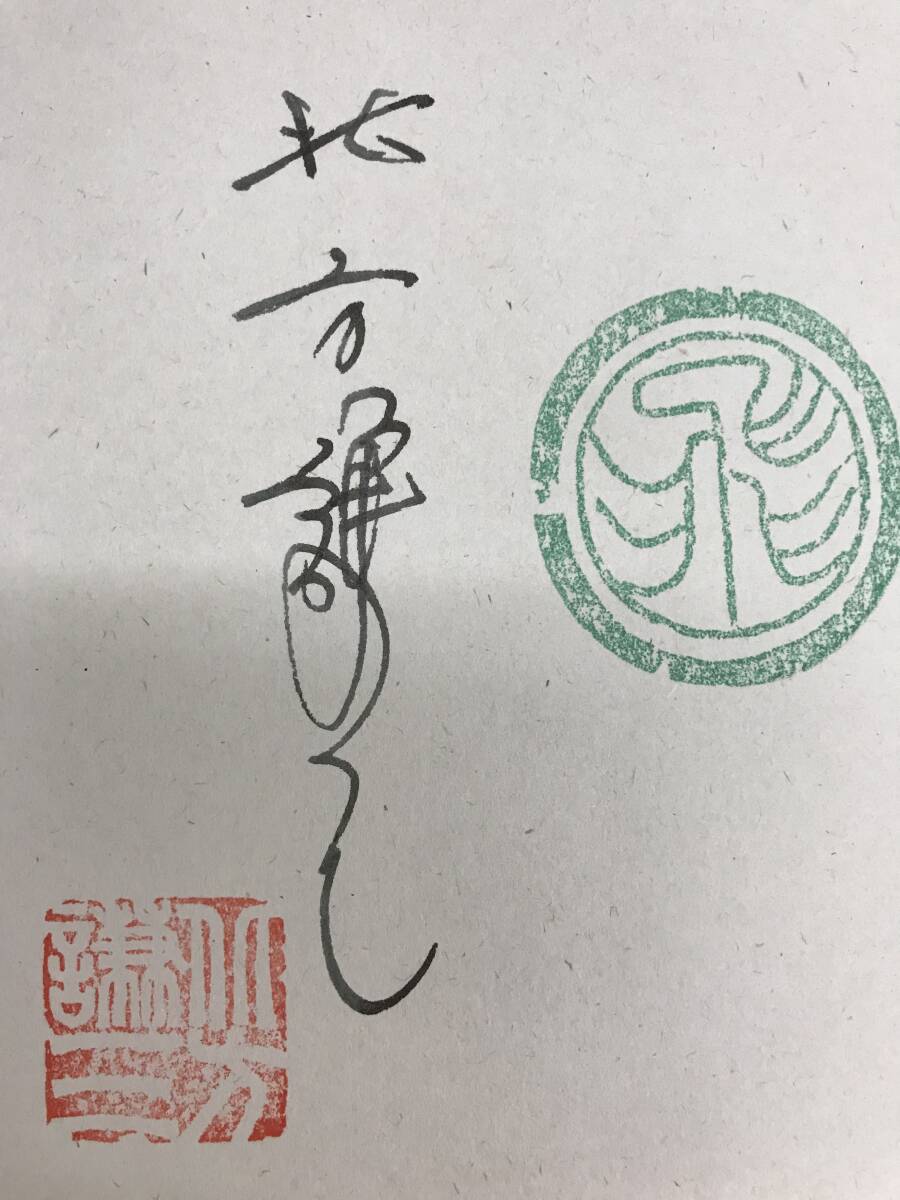 北方謙三
北方
謙三